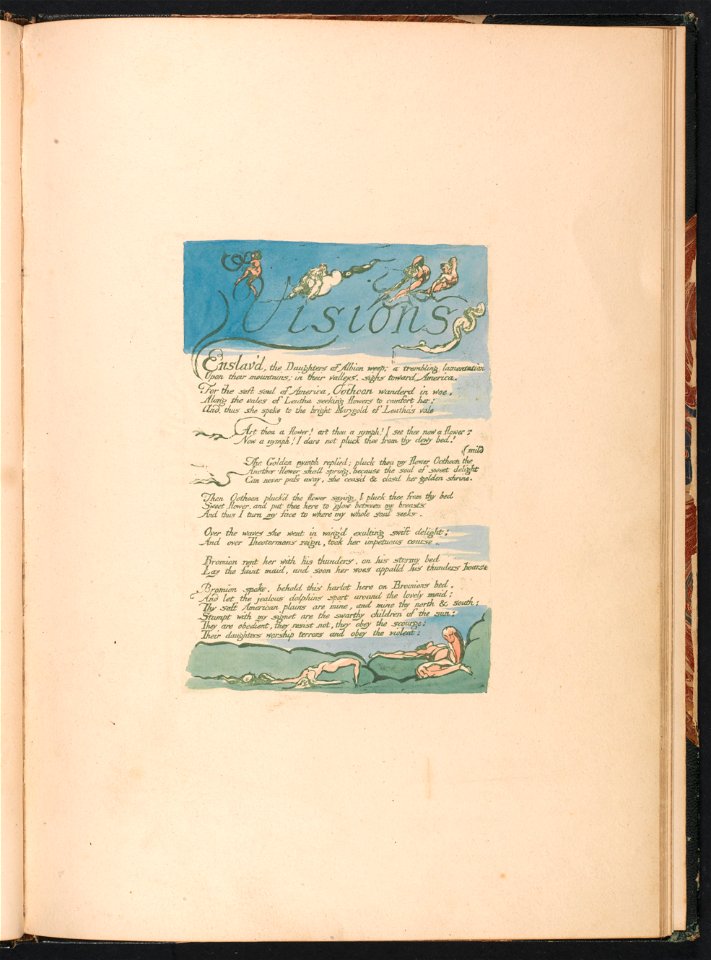 Visions
Enslav'd, the Daughters of Albion weep; a trembling lamentation
Upon their mountains; in their valleys, sighs toward America.
For the soft soul of America, Oothoon wanderd in woe,
Along the vales of Leutha seeking flowers to comfort her;
And thus she spoke to the bright Marygold of Leutha's vale
Art thou a flower! art thou a nymph! I see thee now a flower;
Now a nymph! I dare not pluck thee from thy dewy bed!
The Golden nymph replied; pluck thou my flower Oothoon the mild
Another flower shall spring, because the soul of sweet delight
Can never pass away, she ceas'd & closd her golden shrine.
Then Oothoon pluck'd the flower saying, I pluck thee from thy bed
Sweet flower, and put thee here to glow between my breasts
And thus I turn my face to where my whole soul seeks.
Over the waves she went in wing'd exulting swift delight;
And over Theotormons reign, took her impetuous course.
Bromion rent her with his thunders, on his stormy bed
Lay the faint maid, and soon her woes appalld his thunders hoarse
Bromion spoke, behold this harlot here on Bromions bed,
And let the jealous dolphins sport around the lovely maid;
Thy soft American plains are mine, and mine thy north & south;
Stampt with my signet are the swarthy children of the sun;
They are obedient, they resist not, they obey the scourge;
Their daughters worship terrors and obey the violent;